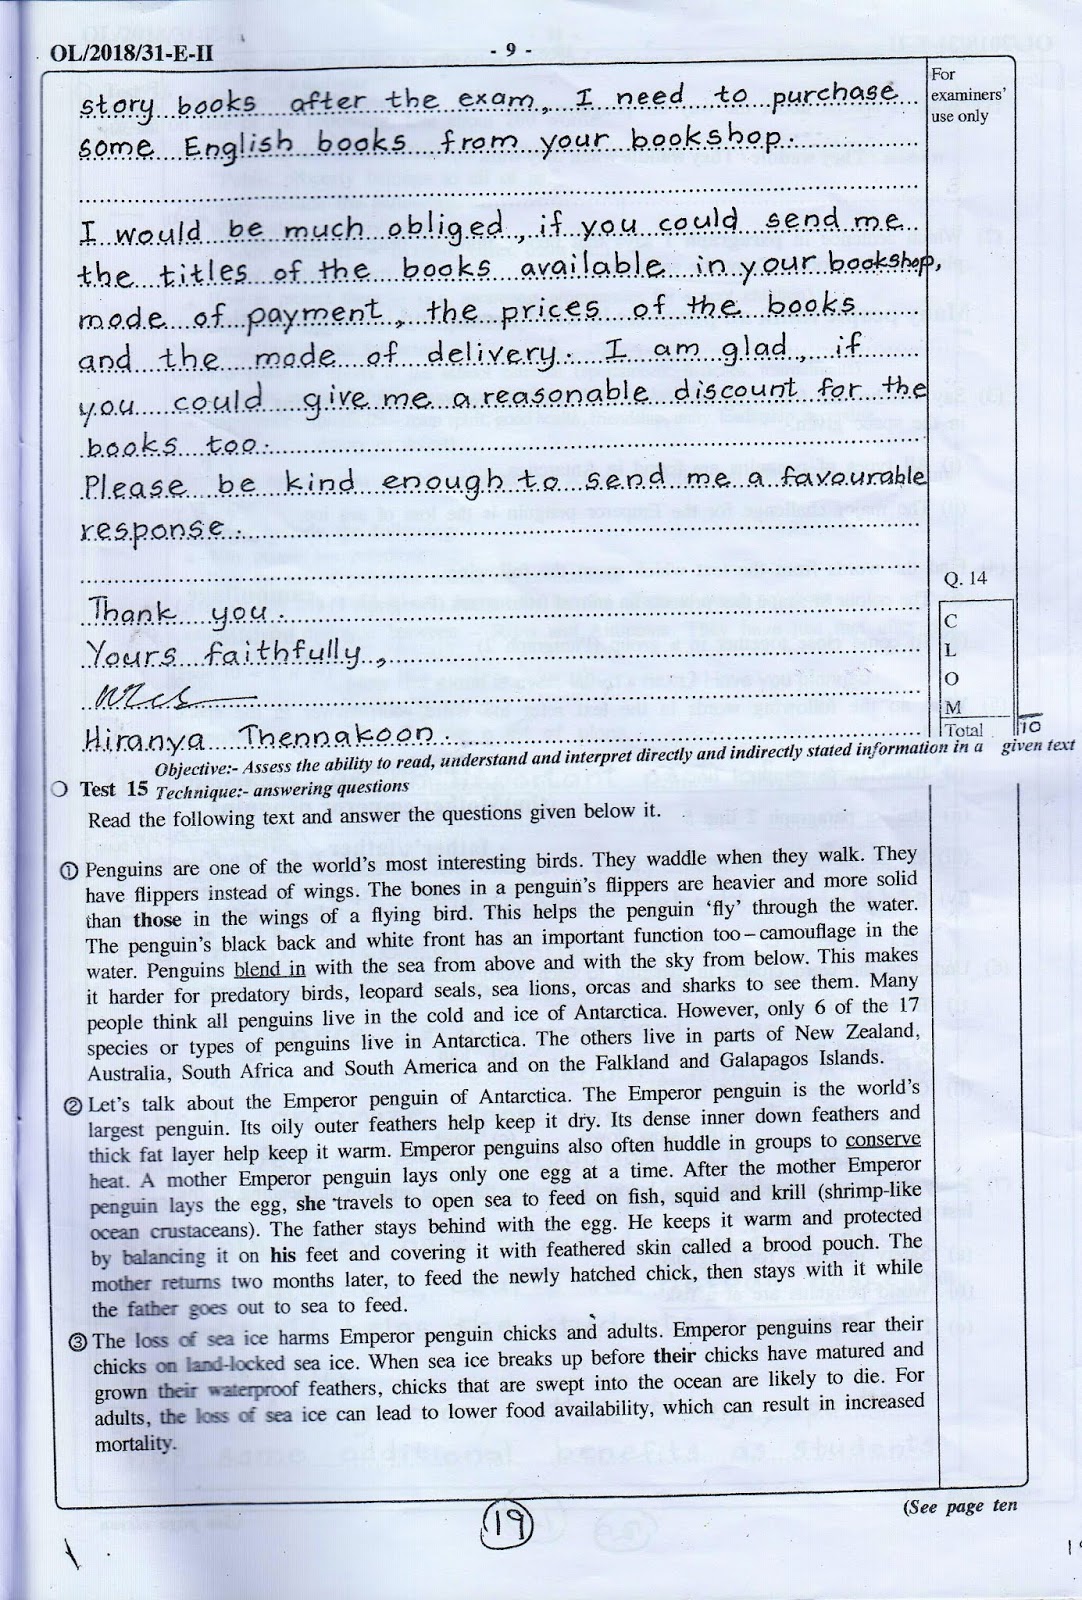 OL/2018/31-E-II
- 9 -
For
examiners'
use only
story books after the exam, I need to purchase
some English books from your bookshop.
I would be much obliged, if you could send me
the titles of the books available in your bookshop,
mode of payment, the prices of the books
and the mode of delivery. I am glad, if
you could give me a reasonable discount for the
books too.
Please be kind enough to send me a favourable
response.
Thank you.
Yours faithfully,
Hiranya Thennakoon.
Q. 14
C
L
O
M
Total 10
Objective:- Assess the ability to read, understand and interpret directly and indirectly stated information in a given text
Test 15 Technique:- answering questions
Read the following text and answer the questions given below it.
① Penguins are one of the world's most interesting birds. They waddle when they walk. They
have flippers instead of wings. The bones in a penguin's flippers are heavier and more solid
than those in the wings of a flying bird. This helps the penguin 'fly' through the water.
The penguin's black back and white front has an important function too – camouflage in the
water. Penguins blend in with the sea from above and with the sky from below. This makes
it harder for predatory birds, leopard seals, sea lions, orcas and sharks to see them. Many
people think all penguins live in the cold and ice of Antarctica. However, only 6 of the 17
species or types of penguins live in Antarctica. The others live in parts of New Zealand,
Australia, South Africa and South America and on the Falkland and Galapagos Islands.
② Let's talk about the Emperor penguin of Antarctica. The Emperor penguin is the world's
largest penguin. Its oily outer feathers help keep it dry. Its dense inner down feathers and
thick fat layer help keep it warm. Emperor penguins also often huddle in groups to conserve
heat. A mother Emperor penguin lays only one egg at a time. After the mother Emperor
penguin lays the egg, she travels to open sea to feed on fish, squid and krill (shrimp-like
ocean crustaceans). The father stays behind with the egg. He keeps it warm and protected
by balancing it on his feet and covering it with feathered skin called a brood pouch. The
mother returns two months later, to feed the newly hatched chick, then stays with it while
the father goes out to sea to feed.
③ The loss of sea ice harms Emperor penguin chicks and adults. Emperor penguins rear their
chicks on land-locked sea ice. When sea ice breaks up before their chicks have matured and
grown their waterproof feathers, chicks that are swept into the ocean are likely to die. For
adults, the loss of sea ice can lead to lower food availability, which can result in increased
mortality.
(See page ten
19